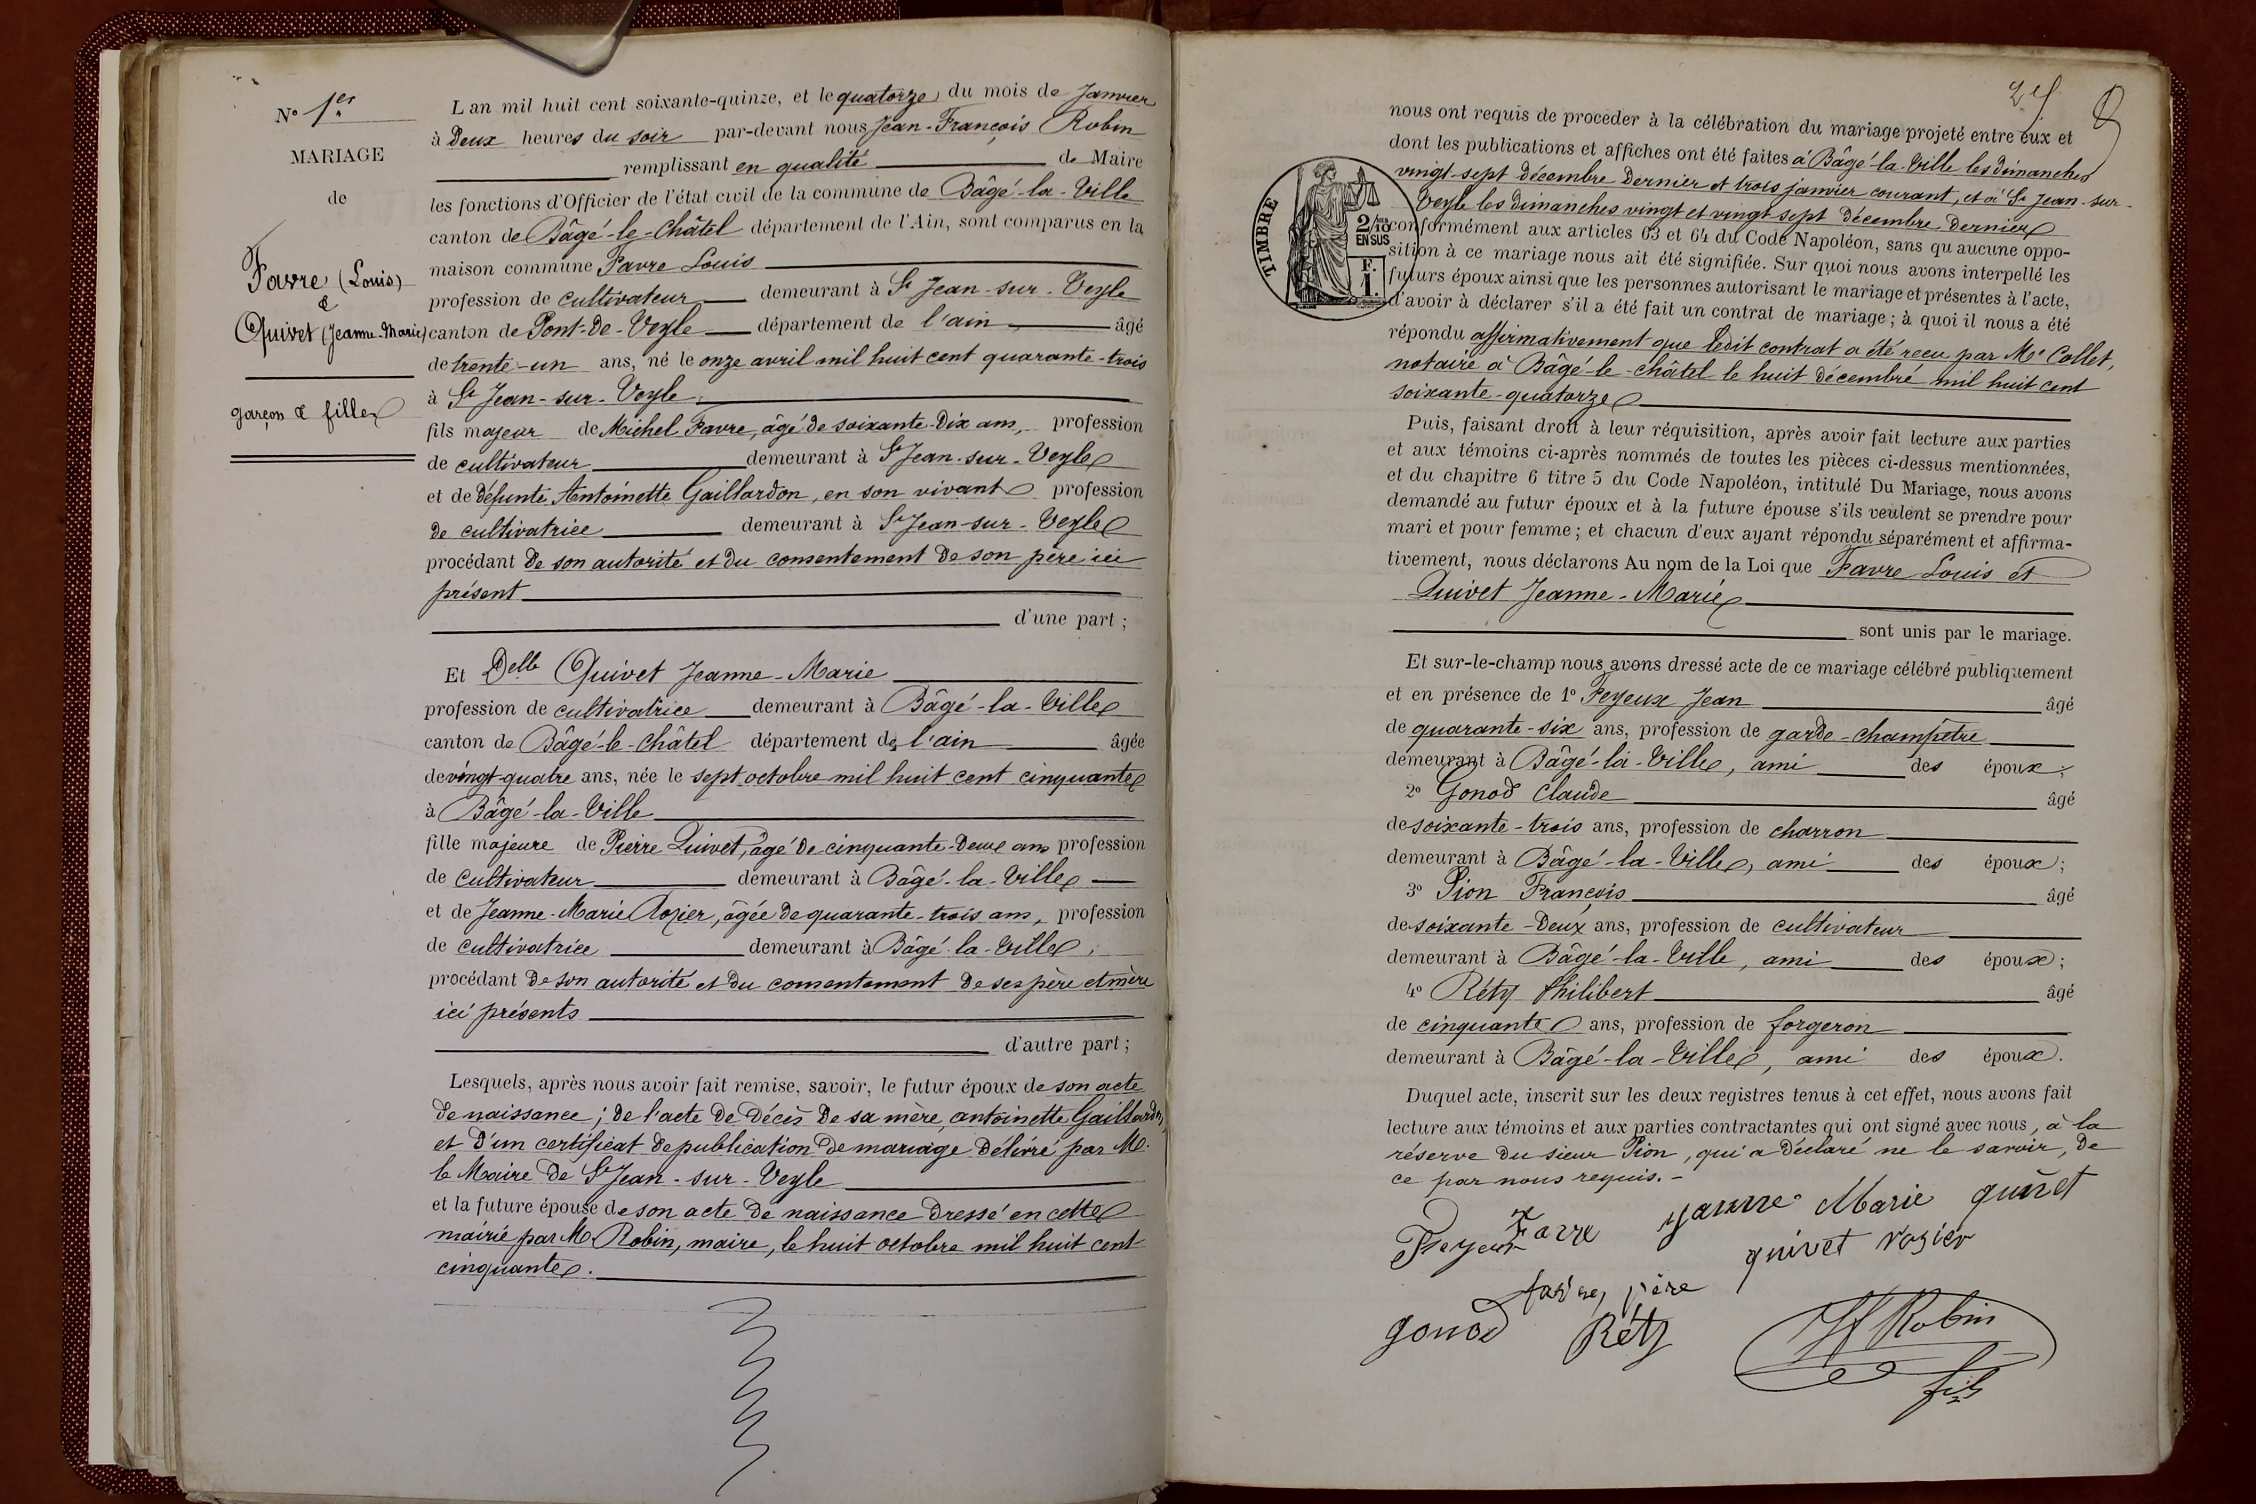 N° 1er
MARIAGE
de
Favre (Louis)
&
Quivet (Jeanne-Marie)
garçon & fille
L'an mil huit cent soixante-quinze, et le quatorze du mois de Janvier
à Deux heures du soir par-devant nous Jean-François Robin
remplissant en qualité de Maire
les fonctions d'Officier de l'état civil de la commune de Bâgé-la-Ville
canton de Bâgé-le-Châtel département de l'Ain, sont comparus en la
maison commune Favre Louis
profession de cultivateur demeurant à St Jean-sur-Veyle
canton de Pont-de-Veyle département de l'ain âgé
de trente-un ans, né le onze avril mil huit cent quarante-trois
à St Jean-sur-Veyle
fils majeur de Michel Favre, âgé de soixante-Dix ans, profession
de cultivateur demeurant à St Jean-sur-Veyle
et de défunte Antoinette Gaillardon, en son vivant profession
de cultivatrice demeurant à St Jean-sur-Veyle
procédant de son autorité et du consentement de son père ici
présent
d'une part ;
Et Delle Quivet Jeanne-Marie
profession de cultivatrice demeurant à Bâgé-la-Ville
canton de Bâgé-le-châtel département de l'ain âgée
de vingt-quatre ans, née le sept octobre mil huit cent cinquante
à Bâgé-la-Ville
fille majeure de Pierre Quivet, âgé de cinquante-Deux ans profession
de cultivateur demeurant à Bâgé-la-Ville
et de Jeanne-Marie Rozier, âgée de quarante-trois ans, profession
de cultivatrice demeurant à Bâgé-la-Ville ;
procédant de son autorité et du consentement de ses père et mère
ici présents
d'autre part ;
Lesquels, après nous avoir fait remise, savoir, le futur époux de son acte
de naissance ; de l'acte de Décès de sa mère, antoinette Gaillardon,
et d'un certificat de publication de mariage délivré par M.
le Maire de St Jean-sur-Veyle
et la future épouse de son acte de naissance dressé en cette
mairie par M. Robin, maire, le huit octobre mil huit cent
cinquante.
nous ont requis de procéder à la célébration du mariage projeté entre eux et
dont les publications et affiches ont été faites à Bâgé-la-Ville les dimanches
vingt-sept décembre Dernier et trois janvier courant, et à St Jean-sur-
Veyle les dimanches vingt et vingt sept décembre dernier
TIMBRE
2/10 EN SUS
F. 1.
conformément aux articles 63 et 64 du Code Napoléon, sans qu'aucune oppo-
sition à ce mariage nous ait été signifiée. Sur quoi nous avons interpellé les
futurs époux ainsi que les personnes autorisant le mariage et présentes à l'acte,
d'avoir à déclarer s'il a été fait un contrat de mariage ; à quoi il nous a été
répondu affirmativement que ledit contrat a été reçu par Me Collet,
notaire à Bâgé-le-châtel le huit décembre mil huit cent
soixante-quatorze
Puis, faisant droit à leur réquisition, après avoir fait lecture aux parties
et aux témoins ci-après nommés de toutes les pièces ci-dessus mentionnées,
et du chapitre 6 titre 5 du Code Napoléon, intitulé Du Mariage, nous avons
demandé au futur époux et à la future épouse s'ils veulent se prendre pour
mari et pour femme ; et chacun d'eux ayant répondu séparément et affirma-
tivement, nous déclarons Au nom de la Loi que Favre Louis et
Quivet Jeanne-Marie
sont unis par le mariage.
Et sur-le-champ nous avons dressé acte de ce mariage célébré publiquement
et en présence de 1° Feyeux Jean âgé
de quarante-six ans, profession de garde-champêtre
demeurant à Bâgé-la-Ville, ami des époux ;
2° Gonod Claude âgé
de soixante-trois ans, profession de charron
demeurant à Bâgé-la-Ville, ami des époux ;
3° Pion François âgé
de soixante-Deux ans, profession de cultivateur
demeurant à Bâgé-la-Ville, ami des époux ;
4° Réty Philibert âgé
de cinquante ans, profession de forgeron
demeurant à Bâgé-la-Ville, ami des époux.
Duquel acte, inscrit sur les deux registres tenus à cet effet, nous avons fait
lecture aux témoins et aux parties contractantes qui ont signé avec nous, à la
réserve du sieur Pion, qui a déclaré ne le savoir, de
ce par nous requis.-
Favre Jeanne Marie quivet
Feyeux quivet rozier
favre, père
gonod Réty
Jf Robin
fils